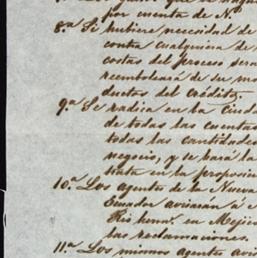 por cuenta de N.º
8.ª Si hubiere necesidad de
contra cualquiera de
costas del proceso seran
reembolsará de su mo
ductos del Crédito.
9.ª Se radica en la Ciuda
de todas las cuentas
todas las cantidades
negocio, y se hará la
trata en la proposici
10.ª Los agentes de la Nueva
Ecuador avisarán á
Ris herm.s en Mejico
las reclamaciones.
11.ª Los mismos agentes avis